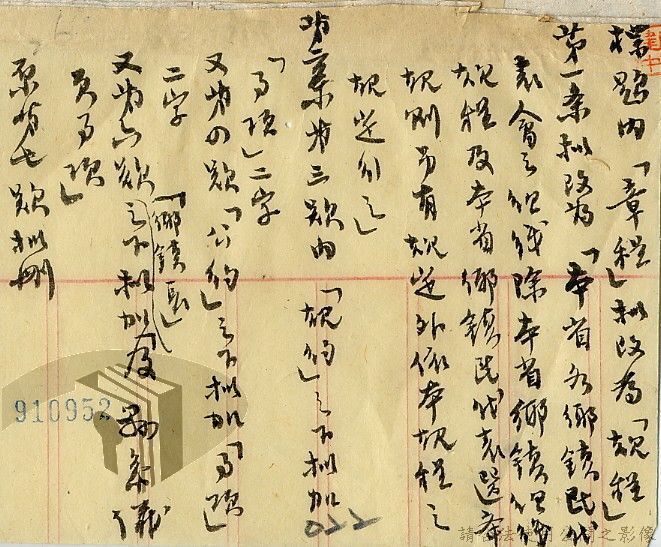 標題內「章程」擬改為「規程」
第一條擬改為「本省各鄉鎮民代
表會之組織除本省鄉鎮組織
規程及本省鄉鎮民代表選舉
規則另有規定外依本規程之
規定行之」
第二條第三款內「規約」之下擬加
「事項」二字
又第四款「公約」之下擬加「事項」
二字
又第六款「鄉鎮長」之下擬加及
員事項」
原第七款擬刪
910952
022